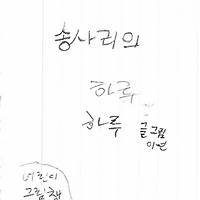 송사리의
하루
하루
글그림
이연
어린이
그림책